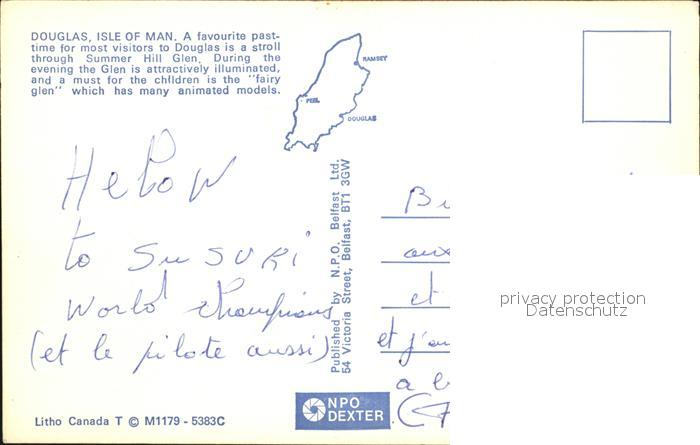 DOUGLAS, ISLE OF MAN. A favourite past-
time for most visitors to Douglas is a stroll
through Summer Hill Glen. During the
evening the Glen is attractively illuminated,
and a must for the children is the "fairy
glen" which has many animated models.
RAMSEY
PEEL
DOUGLAS
Hellow
to SuSuRi
World Champions
(et le pilote aussi)
Published by N.P.O. Belfast Ltd.
54 Victoria Street, Belfast, BT1 3GW
aux
et
et j'au
a
privacy protection
Datenschutz
NPO
DEXTER
Litho Canada T © M1179 - 5383C